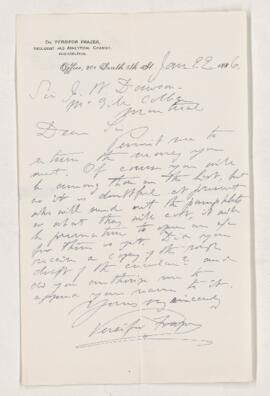 Dr. PERSIFOR FRAZER,
GEOLOGIST AND ANALYTICAL CHEMIST,
PHILADELPHIA.
Office, 201 South 5th St. Jan 22 1886.
Sir J W Dawson
McGill College
Montreal
Dear Sir
Permit me to
return the money you
sent. Of course you will
be among them on the list, but
as it is doubtful at present
who will send out the pamphlets
or what they will cost, it will
be premature to open an a/c
for them as yet. Did you
receive a copy of the rough
draft of the circular? and
do you authorize me to
append your name to it.
Yours very sincerely
Persifor Frazer